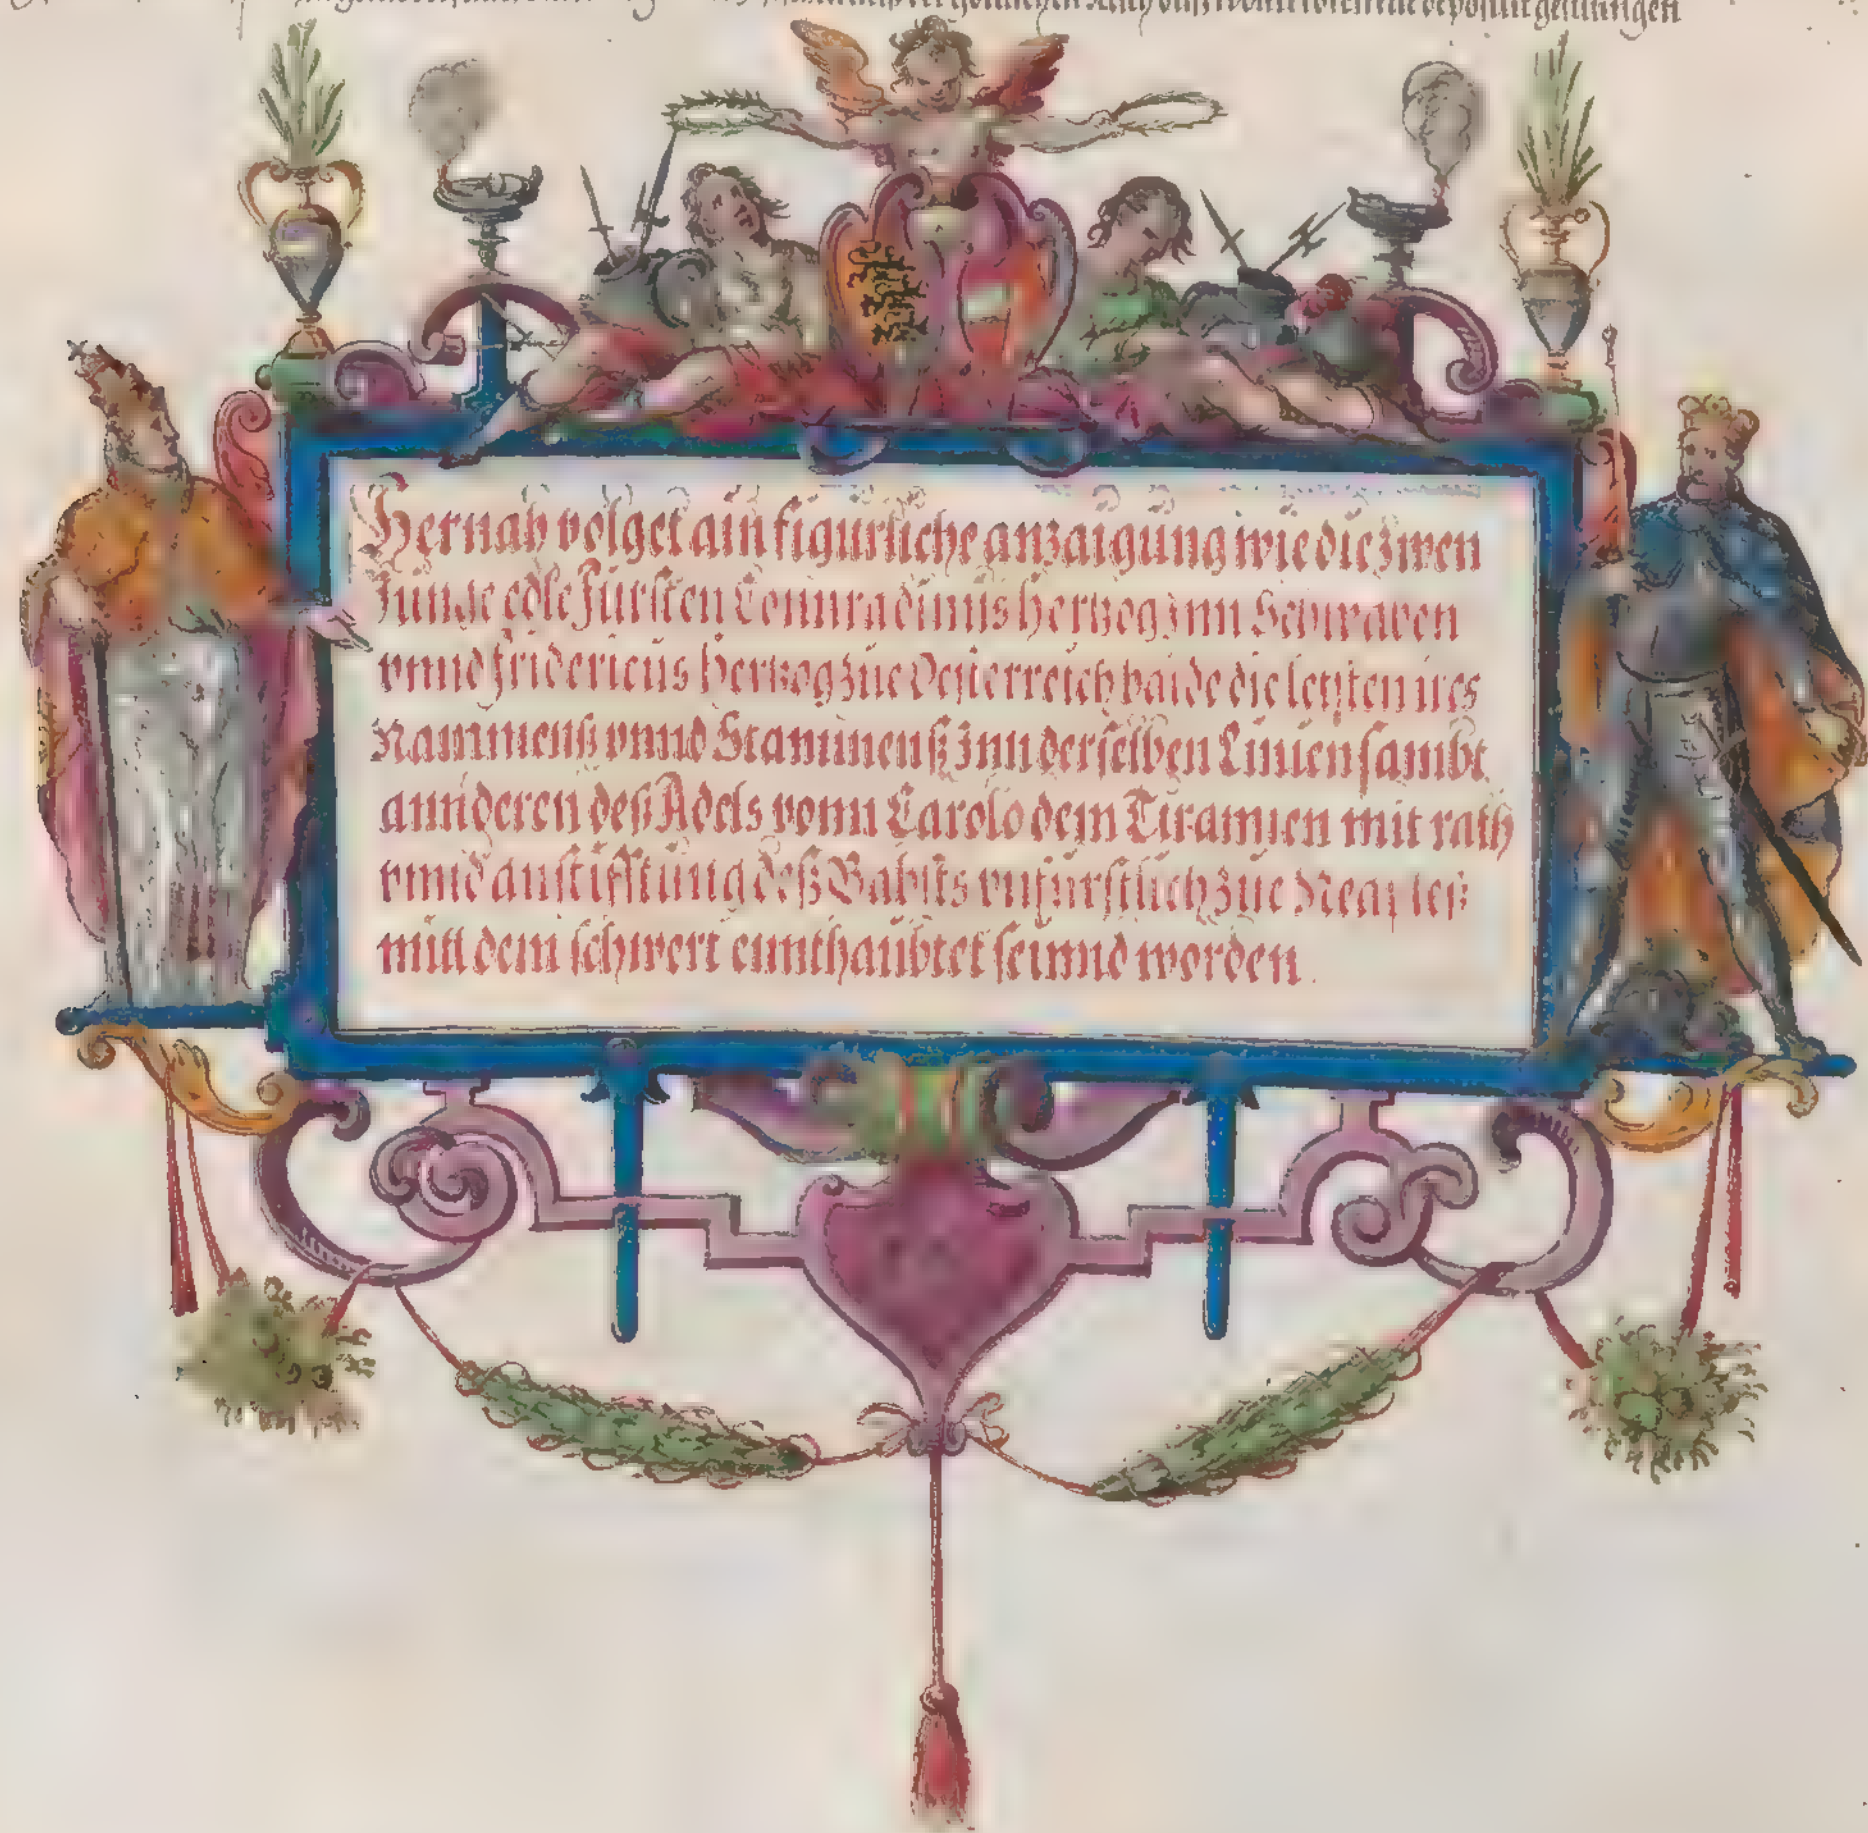 der göttlichen
Hernab volget ain figurliche anzaigung wie die zwen
Junge edle Fürsten Connradinus Hertzog inn Schwaben
vnnd Fridericus Hertzog züe Oesterreich baide die letsten ires
Nammenß vnnd Stammenß inn derselben Linien sambt
annderen deß Adels vonn Carolo dem Tirannen mit rath
vnnd anstifftung deß Babsts vnfürstlich züe Neaples
mitt dem schwert ennthaubtet seinnd worden.